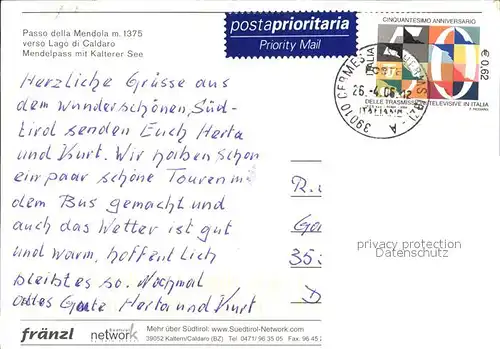 Passo della Mendola m. 1375
verso Lago di Caldaro
Mendelpass mit Kalterer See
postaprioritaria
Priority Mail
CINQUANTESIMO ANNIVERSARIO
€ 0,62
DELLE TRASMISSIONI TELEVISIVE IN ITALIA
39010 CERMES
26.-4.06.-12
Herzliche Grüsse aus
dem wunderschönen, Süd-
tirol senden Euch Herta
und Kurt. Wir haben schon
ein paar schöne Touren mit
dem Bus gemacht und
auch das Wetter ist gut
und warm, hoffentlich
bleibt es so. Nochmal
alles Gute Herta und Kurt
R.
35
D
privacy protection
Datenschutz
fränzl
network
Mehr über Südtirol: www.Suedtirol-Network.com
39052 Kaltern/Caldaro (BZ) Tel. 0471/ 96 35 05 Fax 96 45